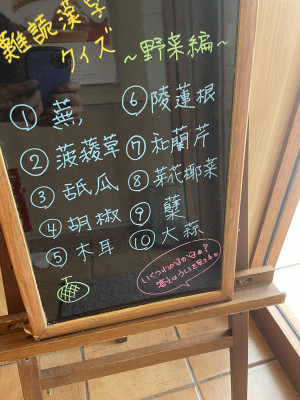 難読漢字
クイズ
~野菜編~
① 蕪
② 菠薐草
③ 舐瓜
④ 胡椒
⑤ 木耳
⑥ 陵蓮根
⑦ 和蘭芹
⑧ 芽花椰菜
⑨ 蘖
⑩ 大蒜
いくつわかるかなぁ?